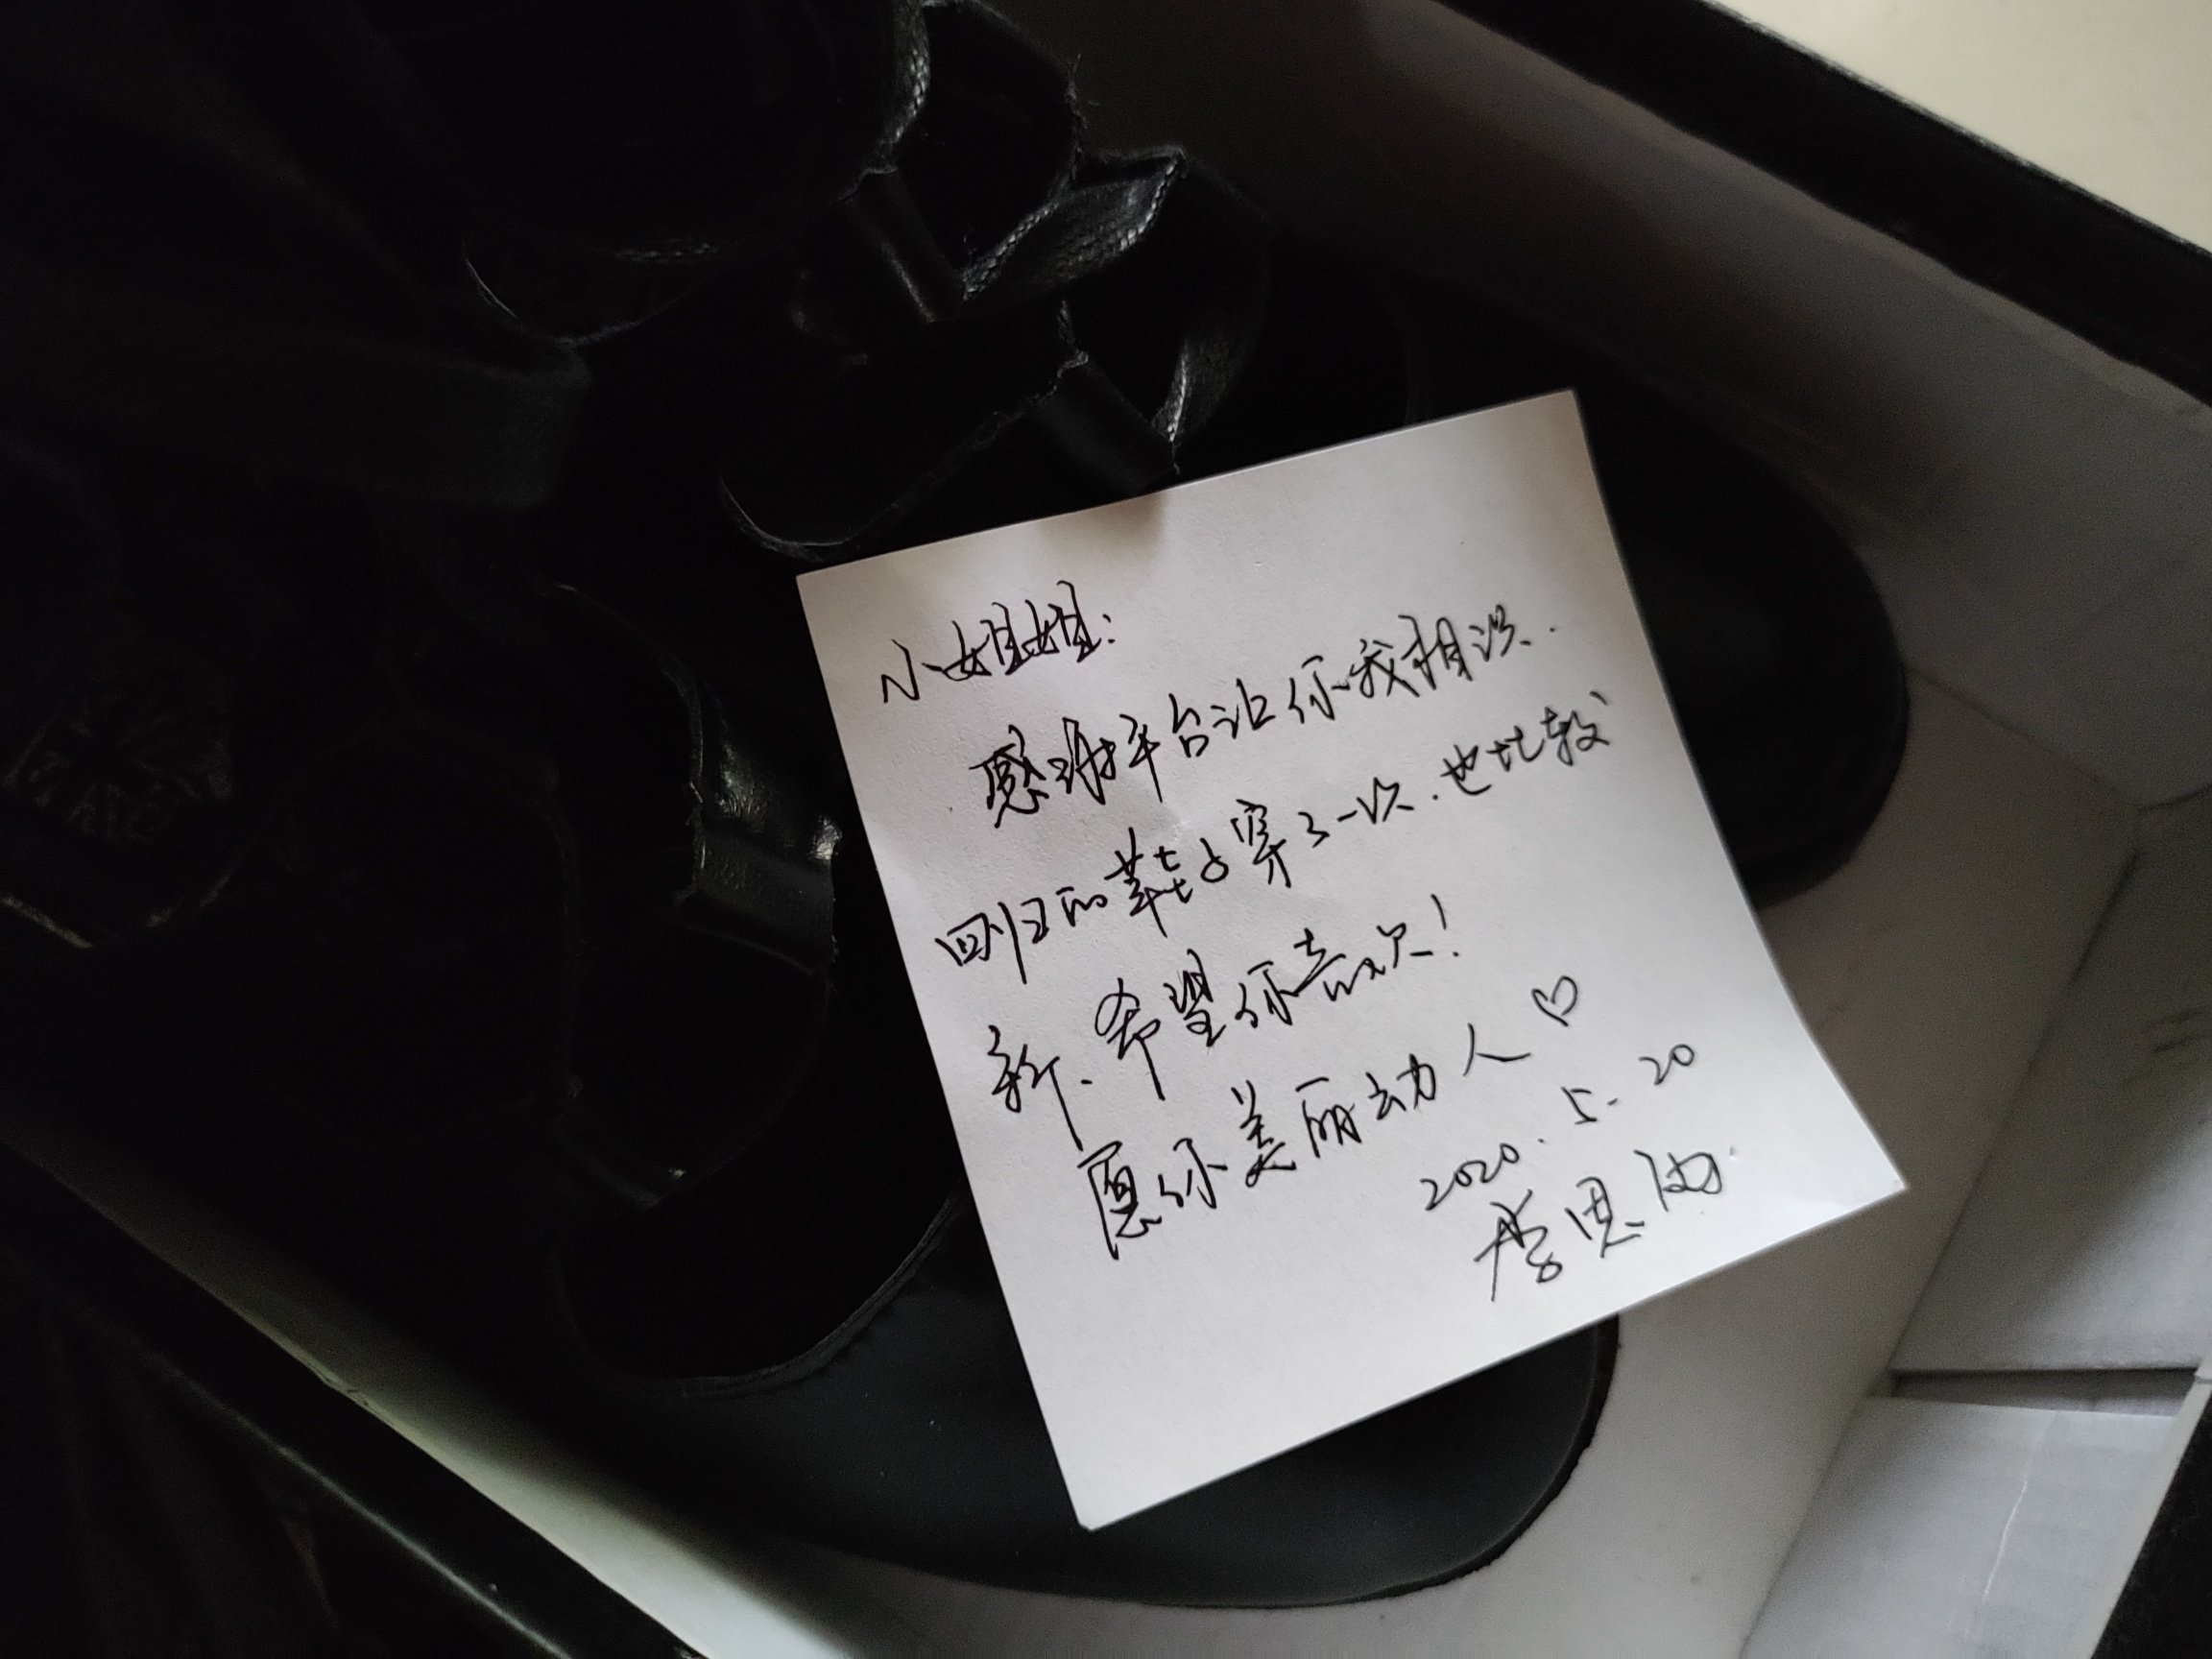 小姐姐:
感谢平台让你我相识.
回归的鞋子穿了一次.也比较
新.希望你喜欢!
愿你美丽动人♡
2020.5.20
李思